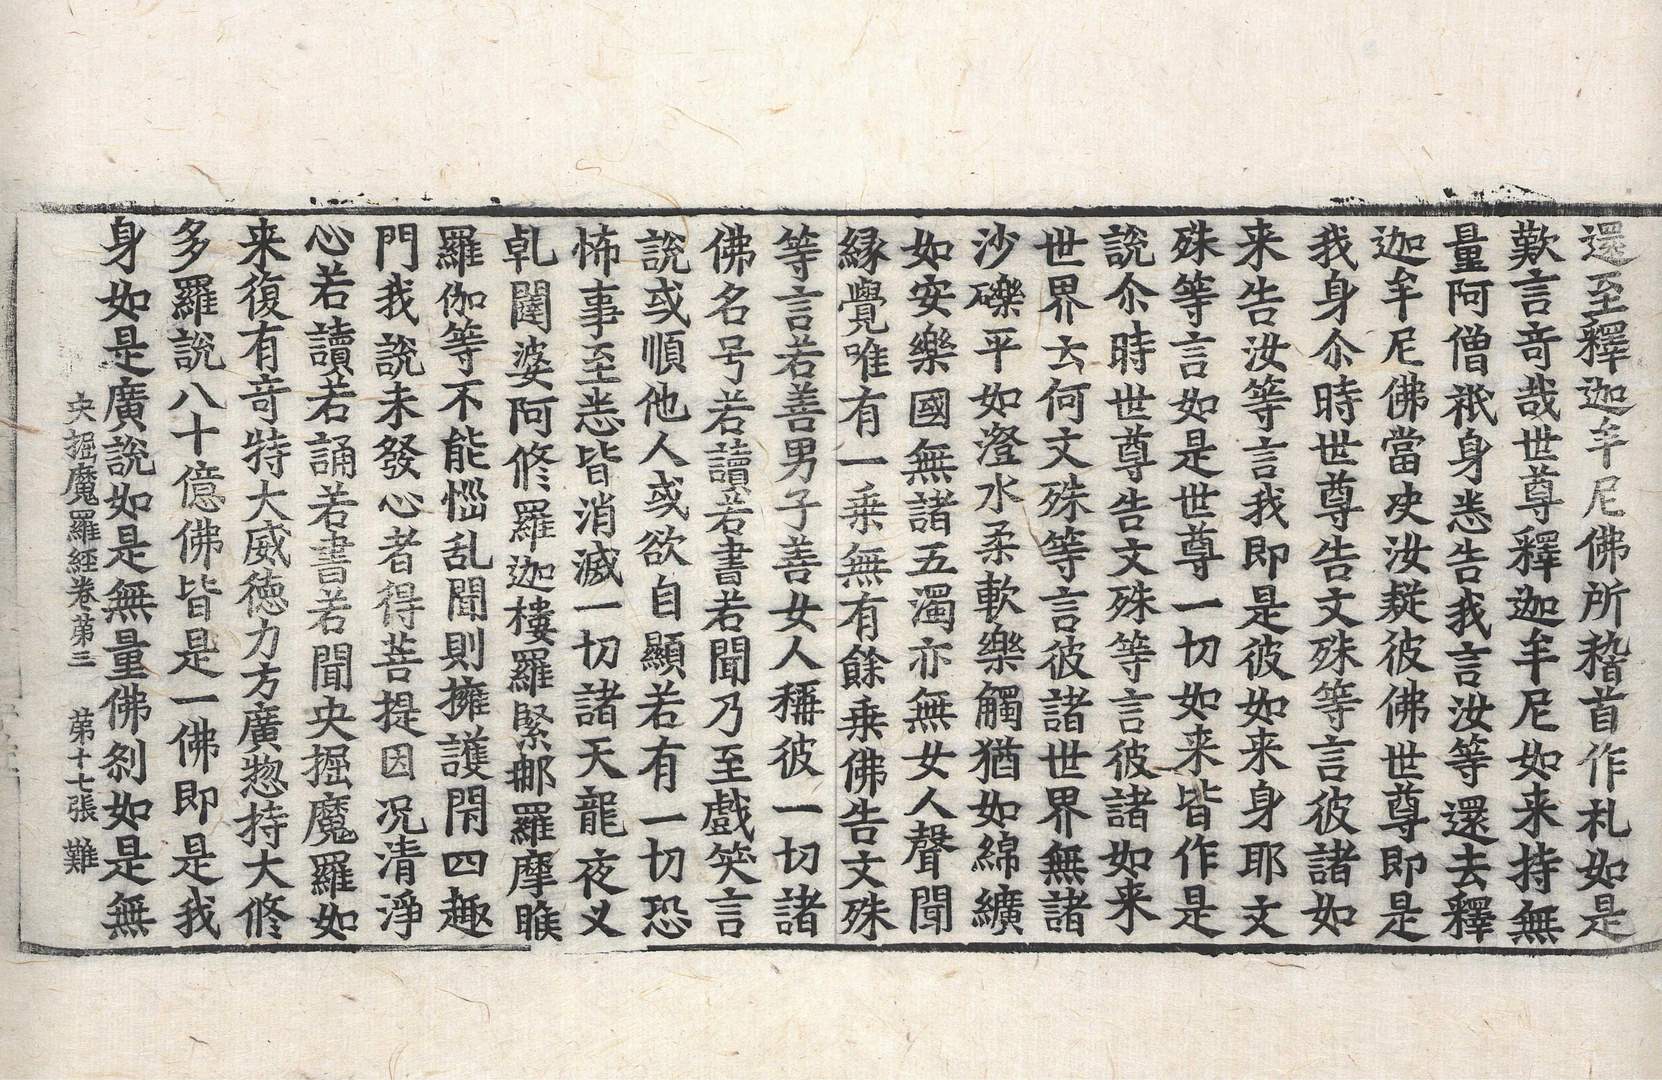 還至釋迦牟尼佛所稽首作礼如是
歎言竒哉世尊釋迦牟尼如来持無
量阿僧祇身悉告我言汝等還去釋
迦牟尼佛當决汝疑彼佛世尊即是
我身尒時世尊告文殊等言彼諸如
来告汝等言我即是彼如来身耶文
殊等言如是世尊一切如来皆作是
說尒時世尊告文殊等言彼諸如来
世界云何文殊等言彼諸世界無諸
沙礫平如澄水柔軟樂觸猶如綿纊
如安樂國無諸五濁亦無女人聲聞
緣覺唯有一乗無有餘乗佛告文殊
等言若善男子善女人稱彼一切諸
佛名号若讀若書若聞乃至戲笑言
說或順他人或欲自顯若有一切恐
怖事至悉皆消滅一切諸天龍夜叉
乹闥婆阿修羅迦樓羅緊那羅摩睺
羅伽等不能惱乱聞則擁護閇四趣
門我說未發心者得菩提因况清淨
心若讀若誦若書若聞央掘魔羅如
来復有竒特大威德力方廣惣持大修
多羅說八十億佛皆是一佛即是我
身如是廣說如是無量佛刹如是無
央掘魔羅經卷第三　第十七張　難